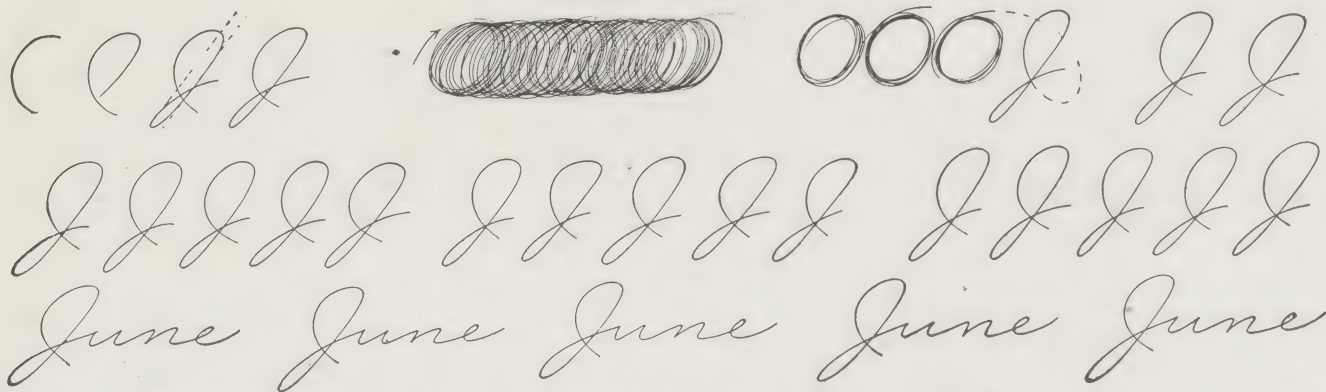 J J J J J
J J J J J J J J J J J J J J J
June June June June June